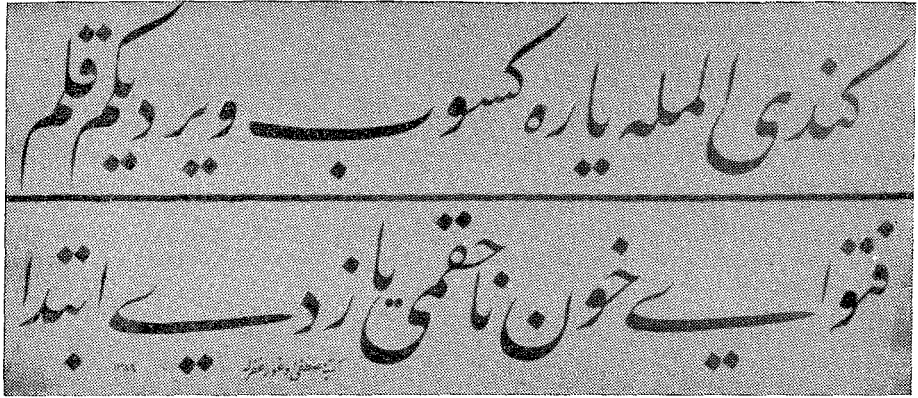 کندی المله یاره کسوب ویردیکم قلم
فتوای خون ناحقمی یازدی ابتدا